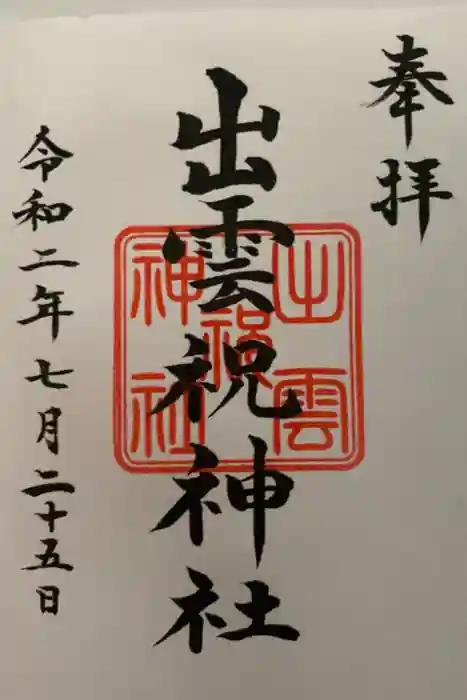 奉拝
出雲祝神社
出雲
祝
神社
令和二年七月二十五日